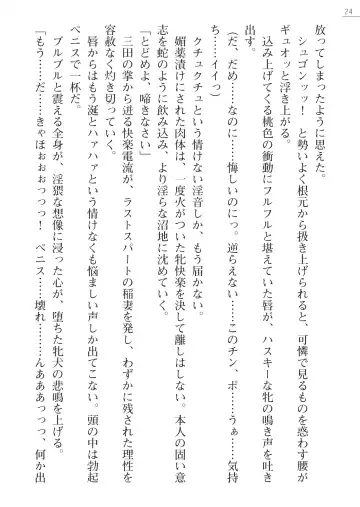 24
放ってしまったように思えた。
シュゴンッッ! と勢いよく根元から扱き上げられると、可憐で見るものを惑わす腰が
ギュオッと浮き上がる。
込み上げてくる桃色の衝動にフルフルと堪えていた唇が、ハスキーな牝の鳴き声を吐き
出す。
(だ、だめ……なのに……悔しいのにっ。逆らえない……このチン、ポ……うぁ……気持
ち……イイっ)
クチュクチュという情けない淫音しか、もう届かない。
媚薬漬けにされた肉体は、一度火がついた牝快楽を離しはしない。本人の固い意
志を蛇のように飲み込み、より淫らな沼地に沈めていく。
「とどめよ、啼きなさい」
三田の掌から迸る快楽電流が、ラストスパートの稲妻を発し、わずかに残された理性を
容赦なく灼き切っていく。
唇からはもう涎とハァハァという情けなくも悩ましい声しか出てこない。頭の中は勃起
ペニスで一杯だ。
ブルブルと震える全身が、淫猥な想像に浸った心が、堕ちた牝犬の悲鳴を上げる。
「もう……だ……きゃほぉぉぉっっっ! ペニス……壊れ……んああぁっっっ、何か出